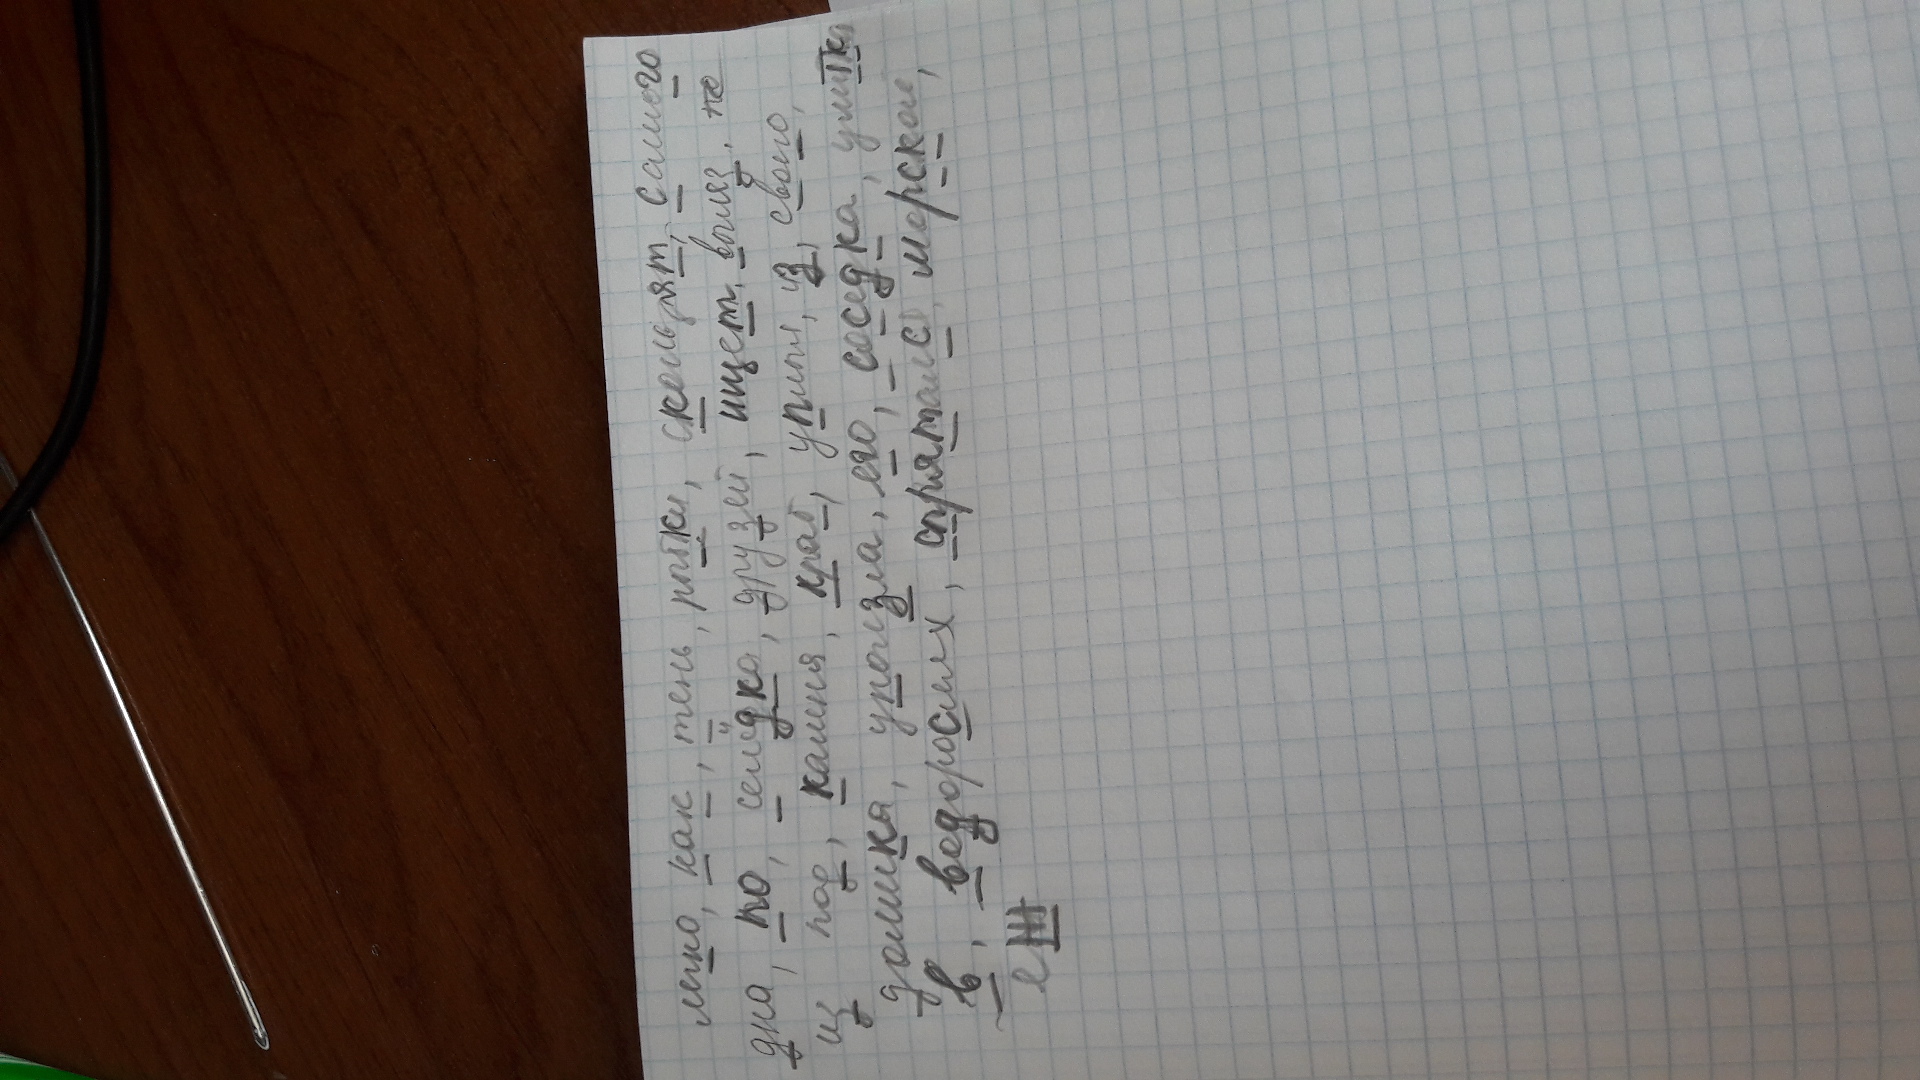 легко, как, тень, рыбки, скользят, самого
дна, по, селёдка, друзей, ищет, вылез,
из под, камня, краб, уплыл, из, своего,
домика, уползла, его, соседка, улитка
в, водорослях, спрятался, морской,
еж